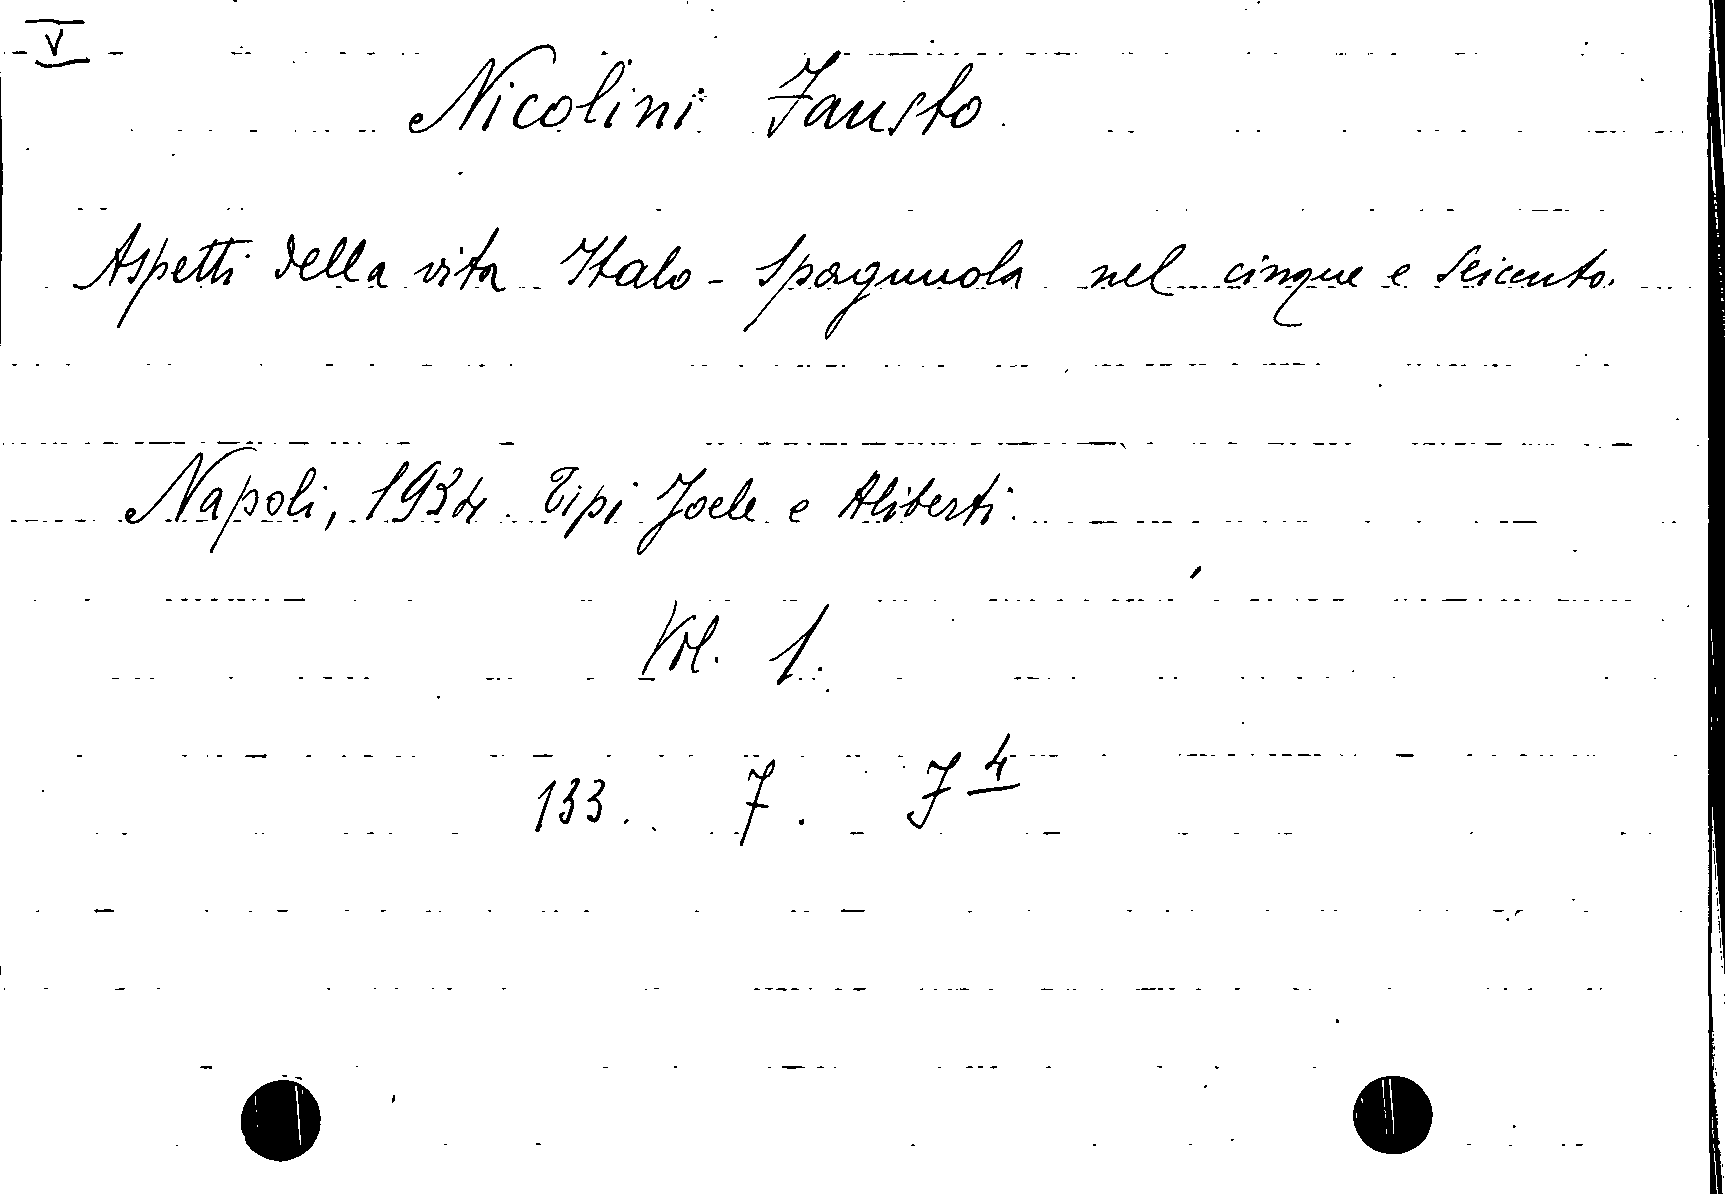 V
Nicolini Fausto
Aspetti della vita Italo-Spagnuola nel cinque e seicento.
Napoli, 1934. Tipi Joele e Aliberti.
Vol. 1.
133. 7. 7 4